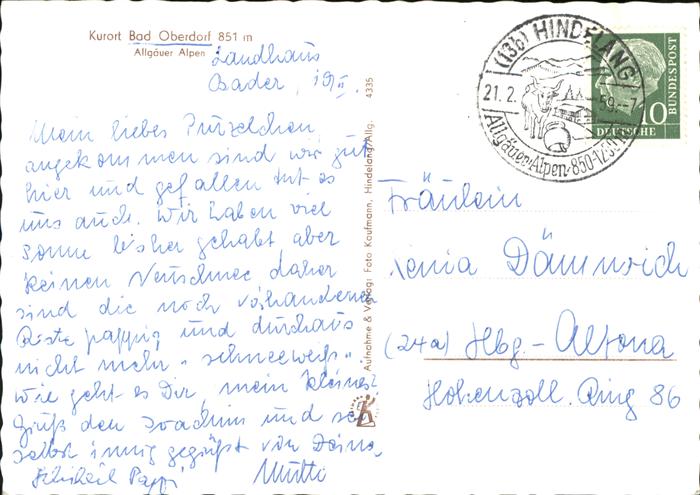 Kurort Bad Oberdorf 851 m
Allgäuer Alpen
Landhaus
Bader, 19.II.
Mein liebes Purzelchen,
angekommen sind wir gut
hier und gefallen tut es
uns auch. Wir haben viel
Sonne bisher gehabt aber
keinen Neuschnee daher
sind die noch vorhandenen
Reste pappig und durchaus
nicht mehr "schneeweiß".
Wie geht es Dir, mein kleines?
Grüß den Joachim und sei
selbst innig gegrüßt von Deiner
Mutti
Pappi
4335
Aufnahme & Verlag: Foto Kaufmann, Hindelang/Allg.
(13b) HINDELANG
21.2. 59.-7
Allgäuer-Alpen-850-1250
10
DEUTSCHE
BUNDESPOST
Fräulein
Xenia Dämmrich
(24a) Hbg.-Altona
Hohenzoll. Ring 86